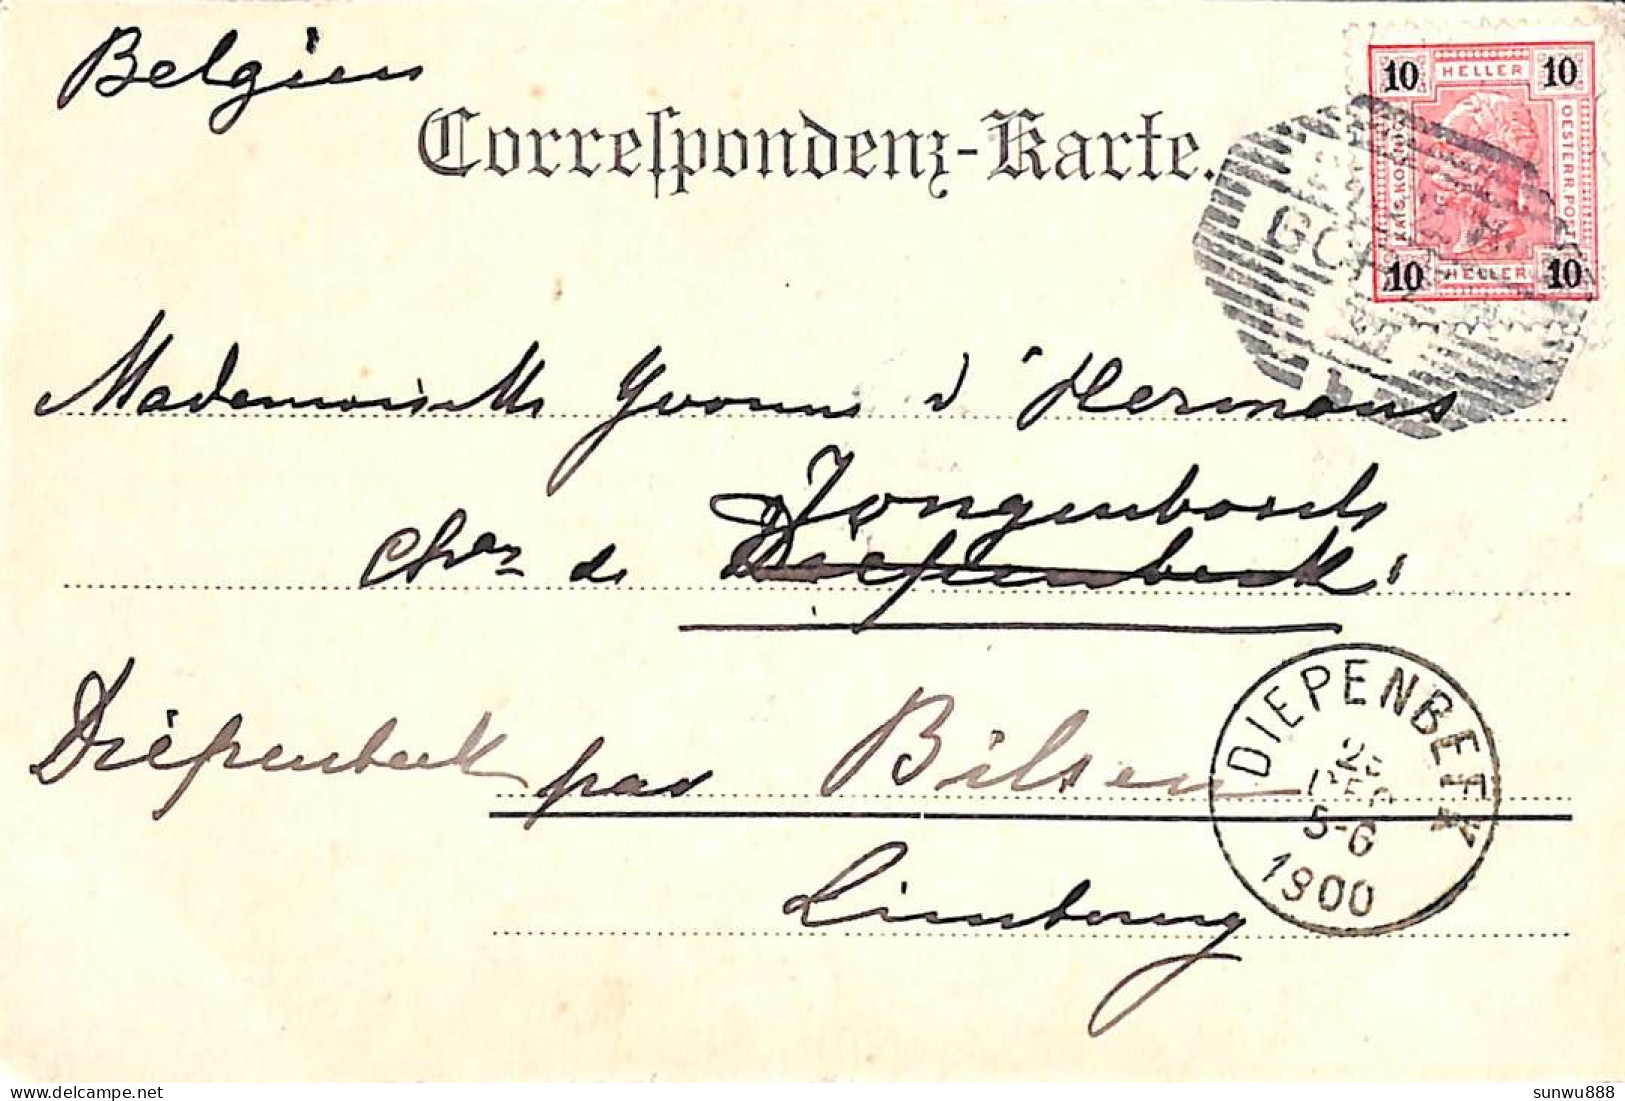 Belgien
Correspondenz-Karte.
10 HELLER 10
OESTERR.POST
10 HELLER 10
Mademoiselle Yvonne d'Hermans
Jongenbosch
de Diepenbeek
Diepenbeek par Bilsen
Limbourg
DIEPENBEEK
DEC
5-6
1900
sunwu888